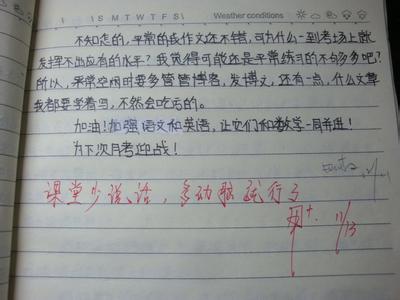 S M T W T F S
Weather conditions
不知怎的，平常的我作文还不错，可为什么一到考场上就
发挥不出应有的水平？我觉得可能还是平常练习的不够多吧？
所以，平常空闲时要多管管博客，发博文，还有一点，什么文章
我都要学着写，不然会吃亏的。
加油！加强语文和英语，让它们和数学一同并进！
为下次月考迎战！
课堂少说话，多动脑就行了
11/13